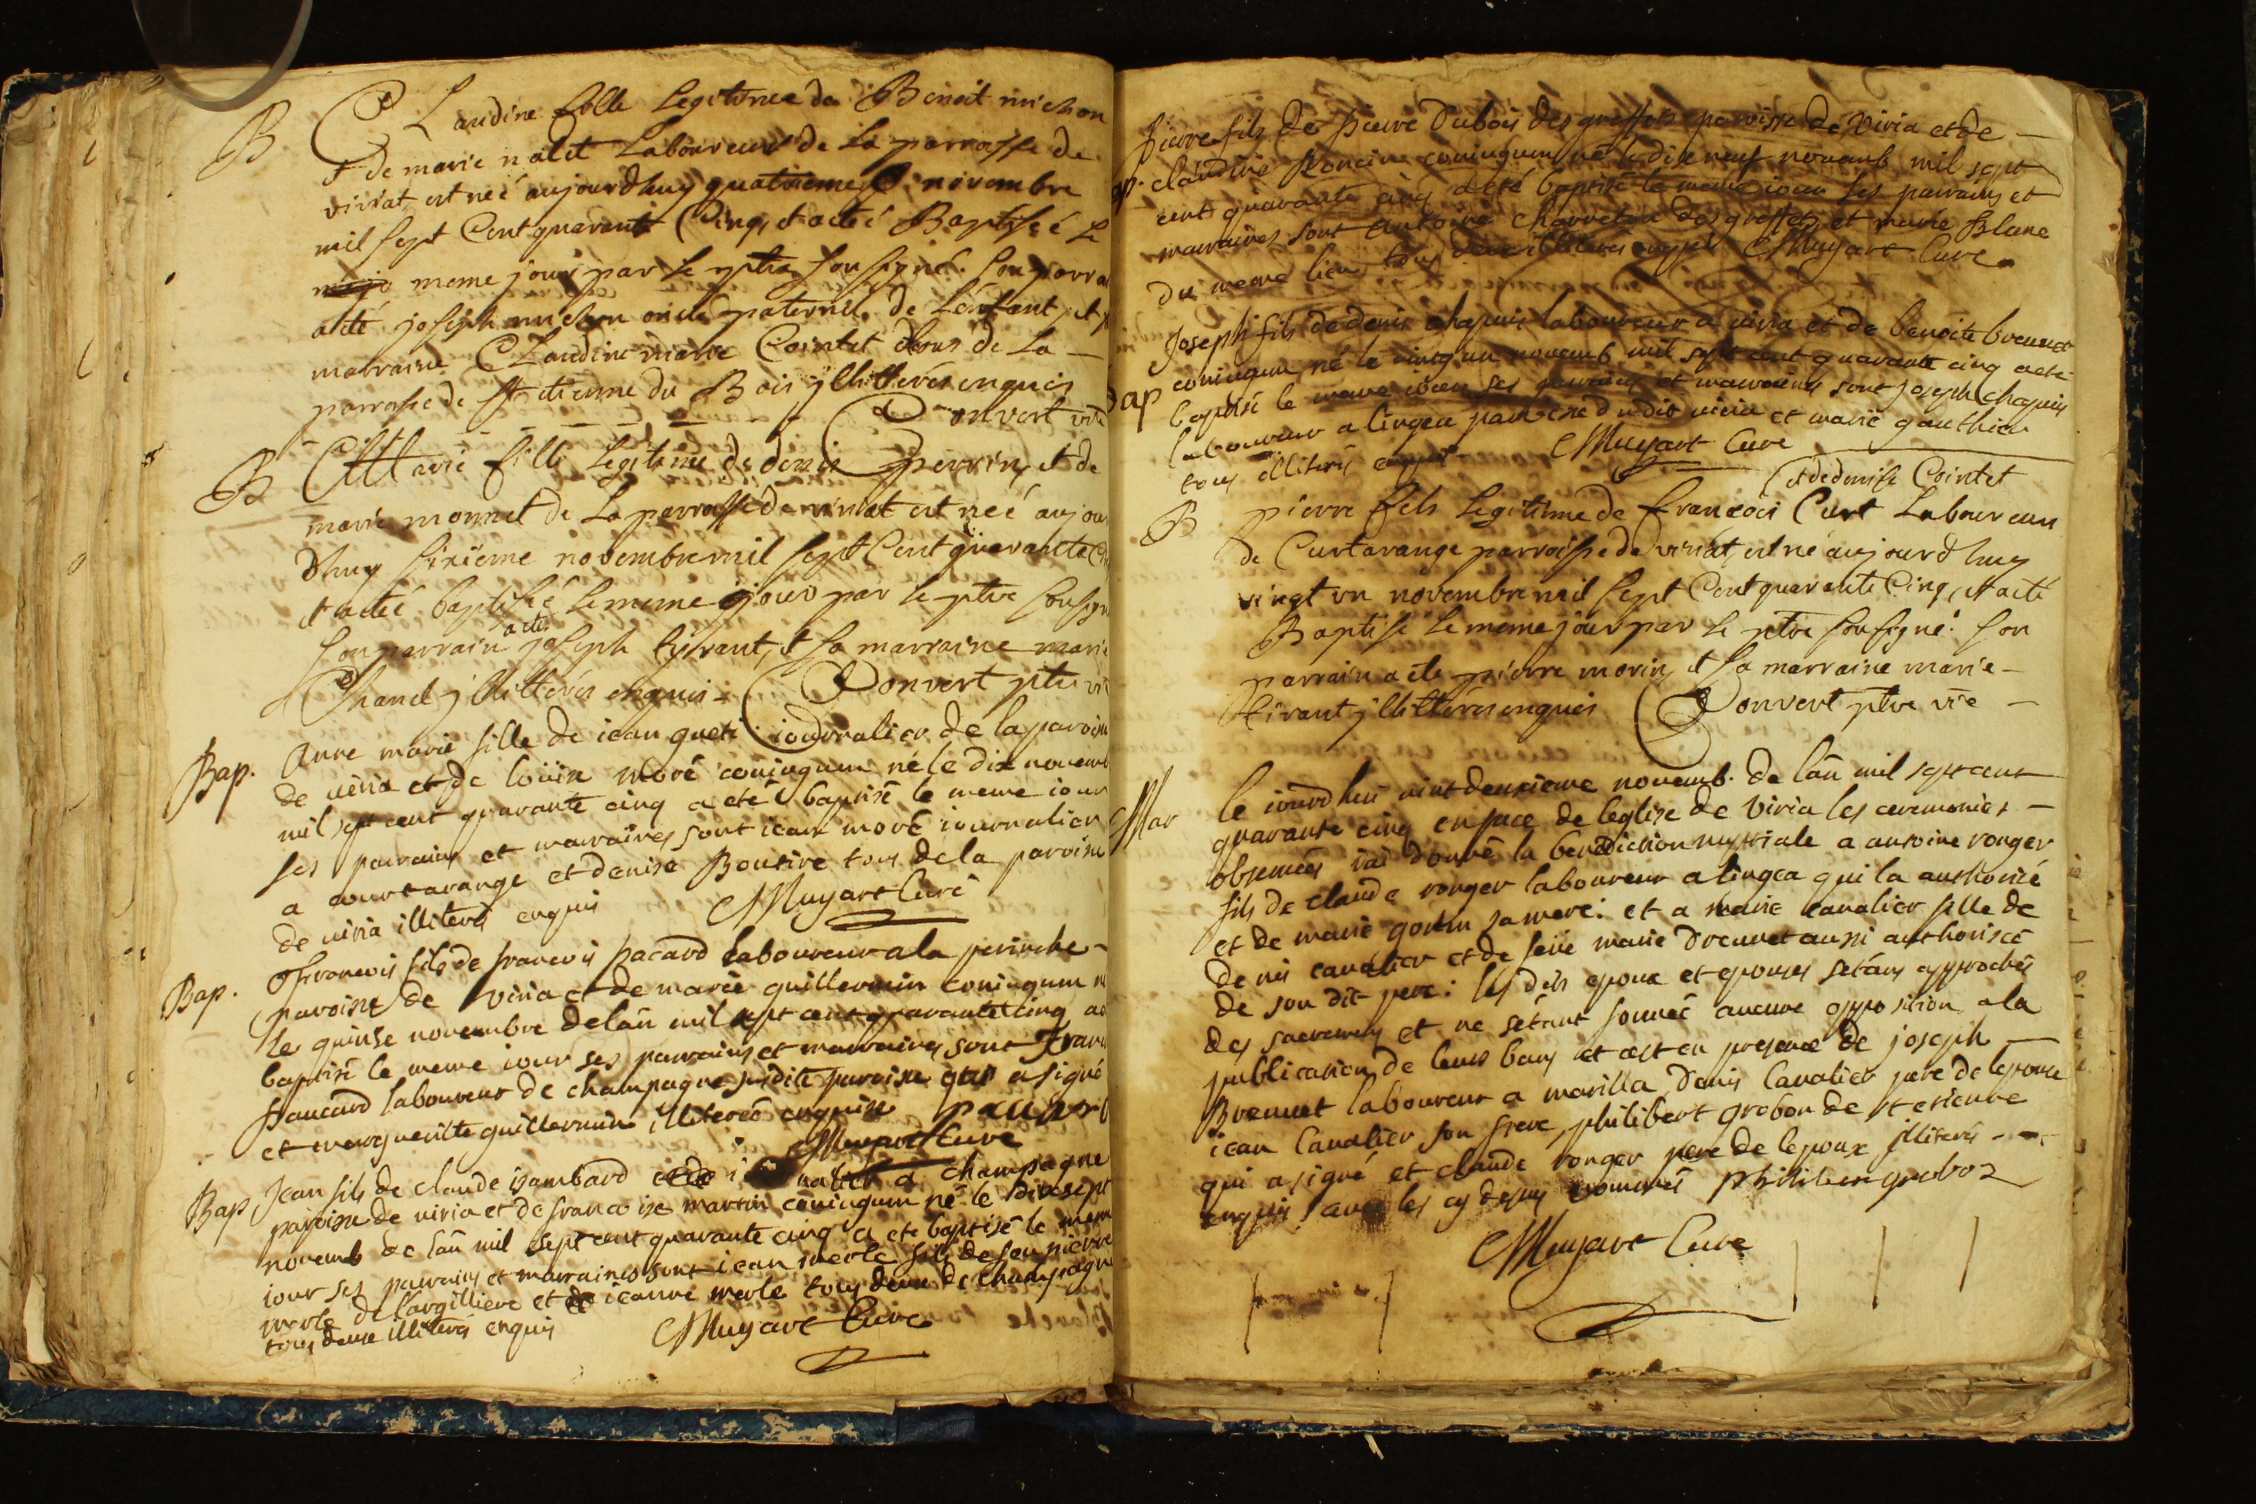 B Claudine fille Legitime de Benoit michon
et de marie nalet Laboureur de La parroisse de
viriat est neé aujourdhuy quatrieme novembre
mil sept Cent quarante Cinq, et a eté Baptisé Le
meme jour par le ptre soussigné. son parra
a eté joseph michon oncle paternel de L'enfant, et
marraine Claudine marie Cointet tous de La
parroisse de st etienne du Bois jllitterés enquis
Convert
B Marie fille Legitime de denis perrin, et de
marie monnet de La parroisse de viriat est neé aujour
dhuy sixieme novembre mil sept Cent quarante
et a eté baptisé le meme jour par le ptre soussign
son parrain a eté joseph tirant, et sa marraine marie
Chanel jllitterés enquis Convert ptre
Bap. Anne marie fille de iean gueti iournalier de la paroisse
de viria et de loüise moré coniugum né le dix novemb
mil sept cent quarante cinq a eté baptisé le meme iour
ses parrains et marraines sont iean moré iournalier
a courtarange et denise Boutire tous de la paroisse
de viria illiterés enquis Muyart Curé
Bap. francois fils de francois pacard laboureur a la perinche
paroisse de viria et de marie guillermin coniugum
le quinse novembre de lan mil sept cent quarante cinq a
baptisé le meme iour ses parrains et marraines sont
laboureur de champagne sudite paroisse qui a signé
et marguerite guillermin illiterée enquise
Muyart Cure
Bap Jean fils de claude isambard a champagne
paroisse de viria et de francoise martin coniugum né le dixsept
novemb de lan mil sept cent quarante cinq a eté baptisé le meme
iour ses parrains et marraines sont iean merle fils de feu pierre
merle de largilliere et de ieanne merle tous deux de champagne
tous deux illiterés enquis Muyart Cure
pierre fils de pierre Dubois des greffets paroisse de viria et de
claudine coniugum né le dix neuf novemb mil sept
cent quarante cinq a eté baptisé le meme iour ses parrains et
marraines sont antoine charveton des greffets et marie Blanc
du meme lieu tous deux illiterés enquis Muyart Curé
Bap Joseph fils de denis chapuis laboureur a viria et de benoite breunet
coniugum né le vingt un novemb mil sept cent quarante cinq a eté
baptisé le meme iour ses parrains et marraines sont joseph chapuis
laboureur a lingea paroisse dudit viria et marie gauthier
tous illiterés enquis Muyart Cure
et de denise Cointet
B pierre fils Legitime de francois Curt Laboureur
de Curtarange parroisse de viriat est né aujourd huy
vingt un novembre mil sept Cent quarante Cinq, et a eté
Baptisé Le meme jour par le ptre soussigné. son
parrain a ete pierre morin, et sa marraine marie
tirant jllitterés enquis Convert ptre vre
Mar le iourdhui vint deuxieme novemb. de lan mil sept cent
quarante cinq en face de leglise de viria les ceremonies
observées iai donné la benediction nuptiale a antoine ronger
fils de claude ronger laboureur a lingea qui la authorisé
et de marie sa mere: et a marie cavalier fille de
denis cavalier et de feüe marie Breunet aussi authorisée
de son dit pere: les dits epoux et epouses setans approchés
des sacremens et ne setant formée aucune opposition a la
publication de leurs bans et cest en presence de joseph
Breunet laboureur a marilla, denis Cavalier pere de lepouse
iean Cavalier son frere, philibert grobon de st etienne
qui a signé et claude ronger pere de lepoux illiterés
enquis avec les cy dessus nommés philiber groboz
Muyart Cure